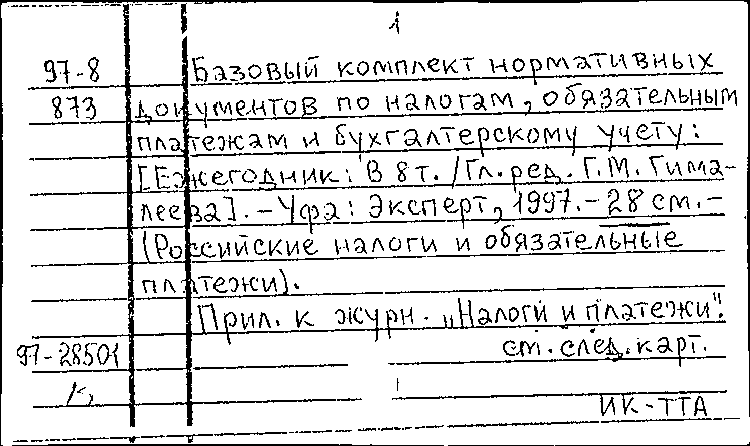 1
97-8 Базовый комплект нормативных
873 документов по налогам, обязательным
платежам и бухгалтерскому учету:
[Ежегодник: В 8 т. /Гл. ред. Г.М. Гима-
леева]. - Уфа: Эксперт, 1997. - 28 см. -
(Российские налоги и обязательные
платежи).
Прил. к журн. „Налоги и платежи".
97-28501 см. след. карт.
ИК-ТТА